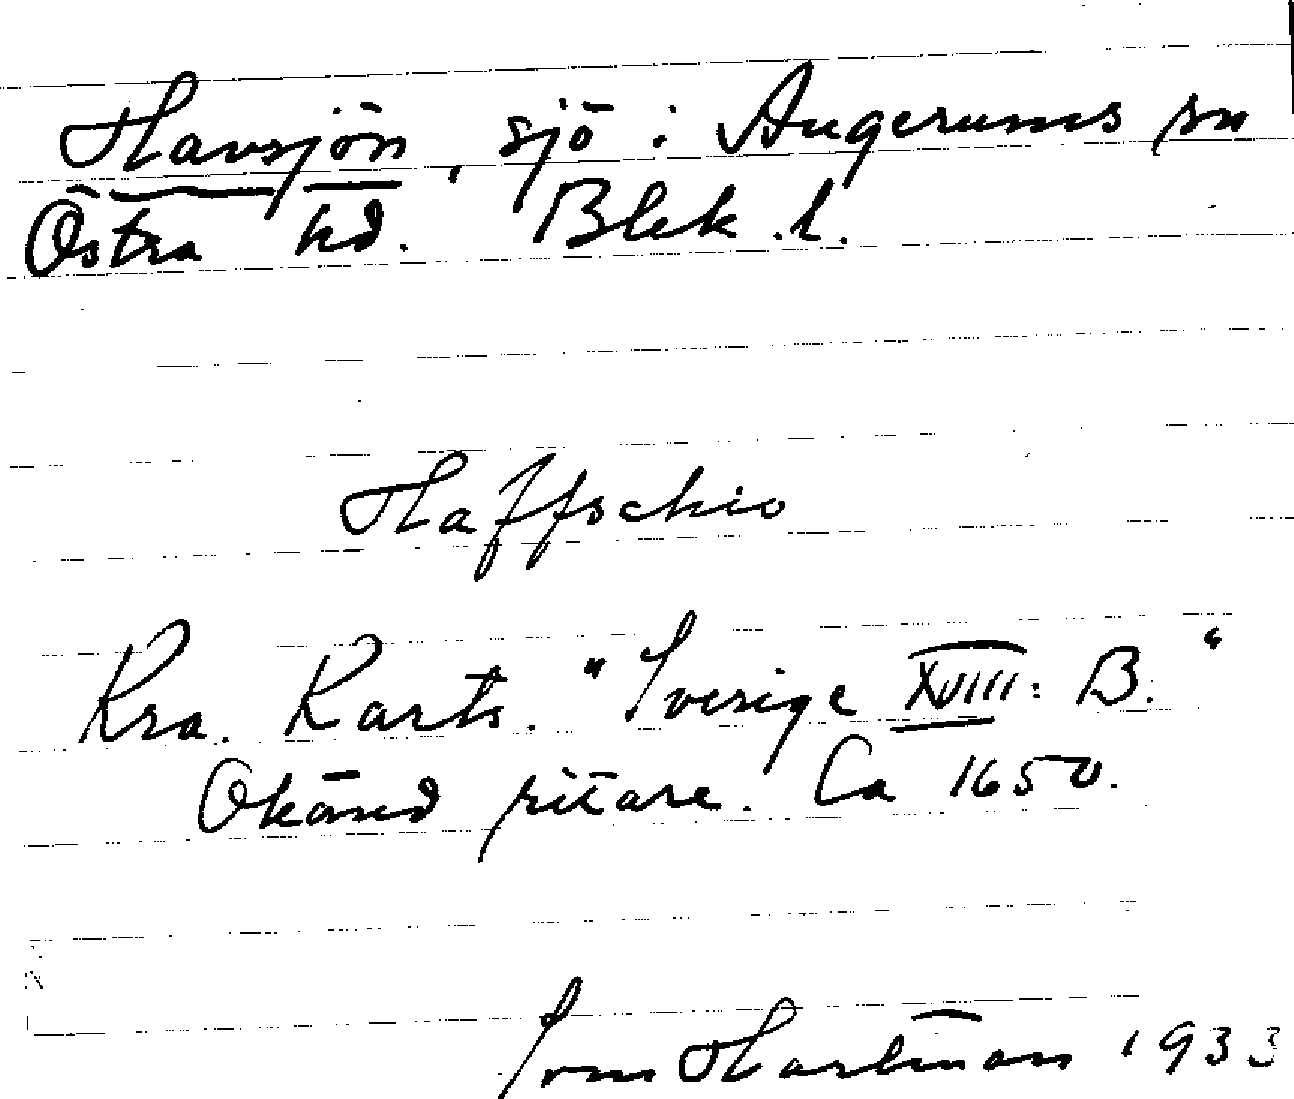 Havsjön, sjö i Augerums sn
Östra hd. Blek. l.
Haffschio
Kra. Karts. "Sverige XVIII: B."
Okänd ritare. Ca 1650.
Hartman 1933